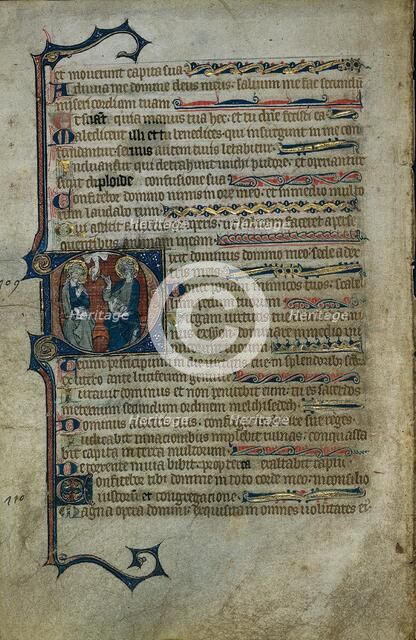 et moverunt capita sua
Adiuva me domine deus meus: salvum me fac secundum
misericordiam tuam
Et sciant quia manus tua hec: et tu domine fecisti ea
Maledicent illi et tu benedices: qui insurgunt in me con
fundantur: servus autem tuus letabitur
Induantur qui detrahunt michi pudore: et operiantur
sicut diploide confusione sua
Confitebor domino nimis in ore meo: et in medio multo
rum laudabo eum
animam meam
Dixit dominus domino meo: sede a dex
tris meis
109
inimicos tuos: scabel
virtutis
dominare in medio ini
Tecum principium in die virtutis tue: in splendoribus
ex utero ante luciferum genui te
Iuravit dominus et non penitebit eum: tu es sacerdos
in eternum secundum ordinem melchisedech
Dominus a dextris tuis: confregit in die ire sue reges
Iudicabit in nationibus implebit ruinas: conquassa
bit capita in terra multorum
De torrente in via bibit: propterea exaltabit caput
Confitebor tibi domine in toto corde meo: in consilio
110
iustorum et congregatione
Magna opera domini: exquisita in omnes voluntates ei
Heritage
Heritage
Heritage
Heritage
Heritage